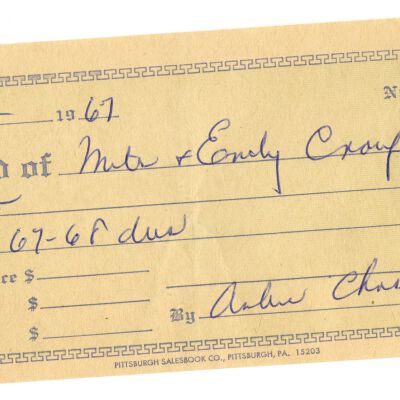 N
19 67
d of Milt & Emily Crouf
67-68 dues
ce $
$
$ By Arlene Chas
PITTSBURGH SALESBOOK CO., PITTSBURGH, PA. 15203